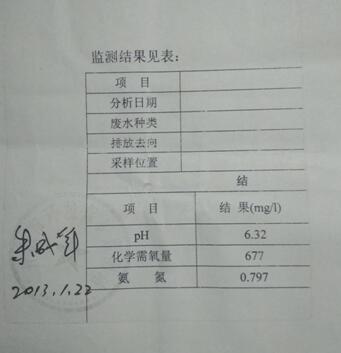 监测结果见表:
项 目
分析日期
废水种类
排放去向
采样位置
结
项 目 结 果(mg/l)
pH 6.32
化学需氧量 677
氨 氮 0.797
2013.1.22